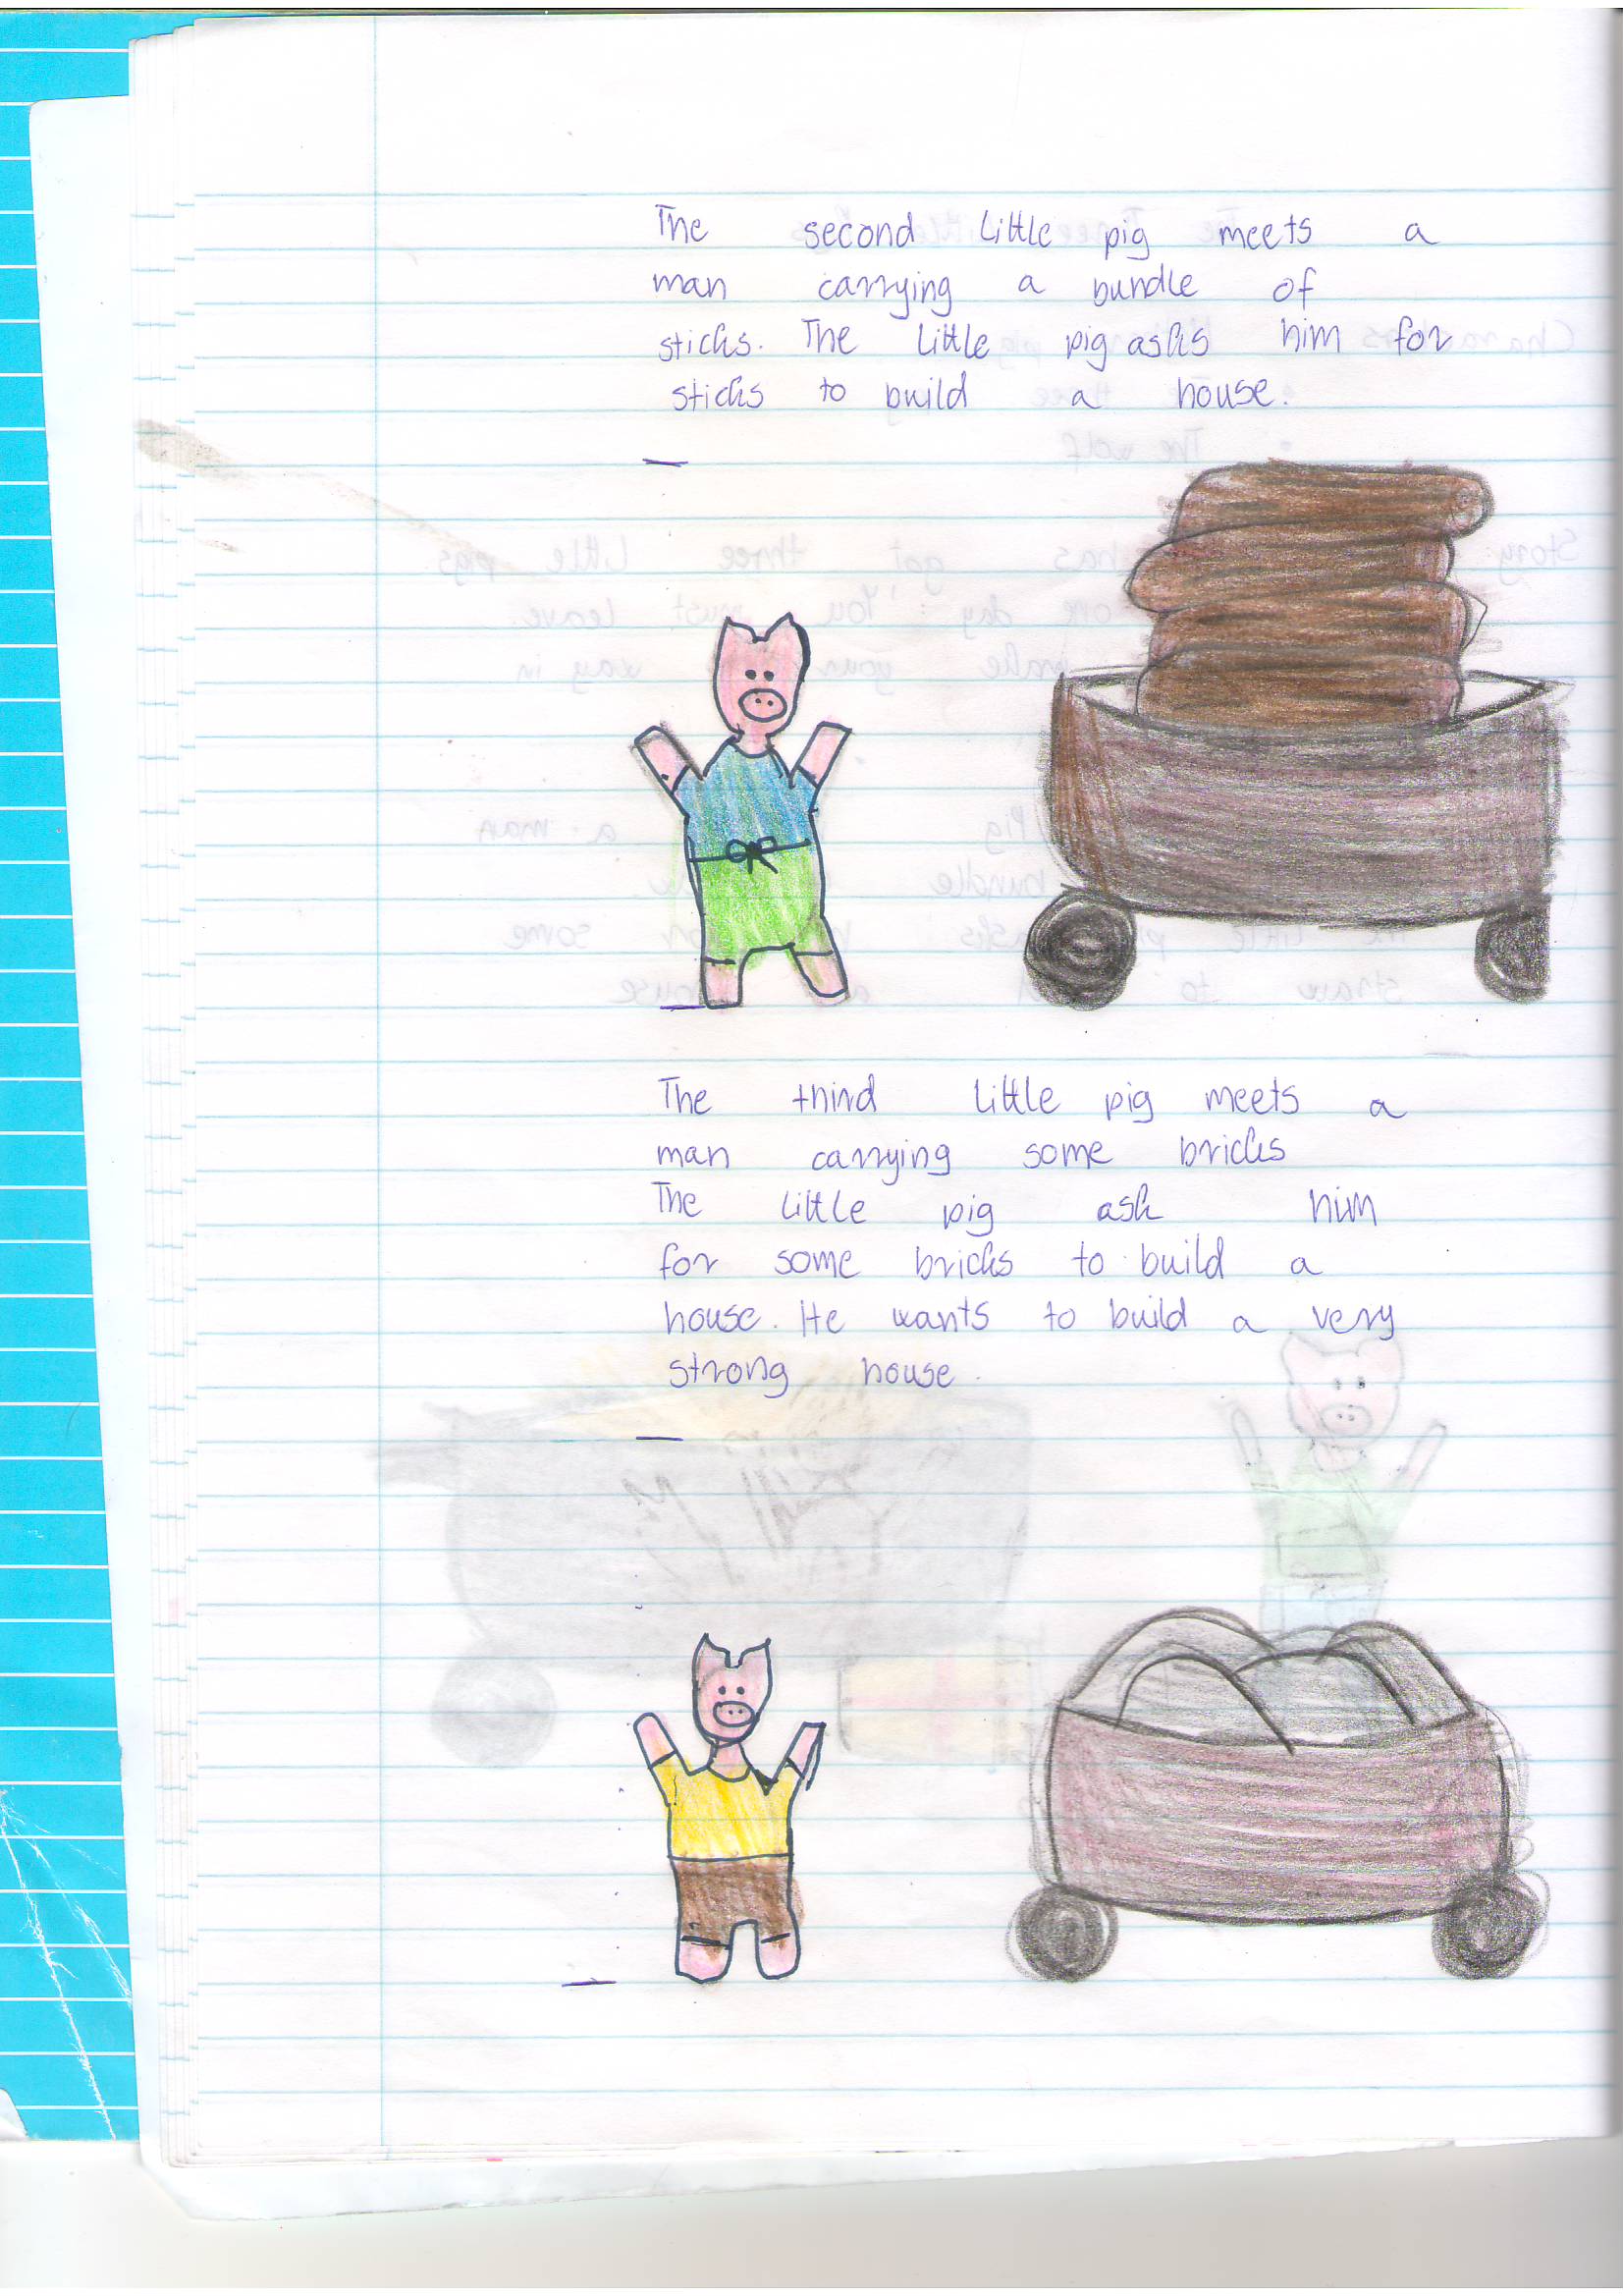 The second little pig meets a
man carrying a bundle of
sticks. The little pig asks him for
sticks to build a house.
The third little pig meets a
man carrying some bricks
The little pig ask him
for some bricks to build a
house. He wants to build a very
strong house.